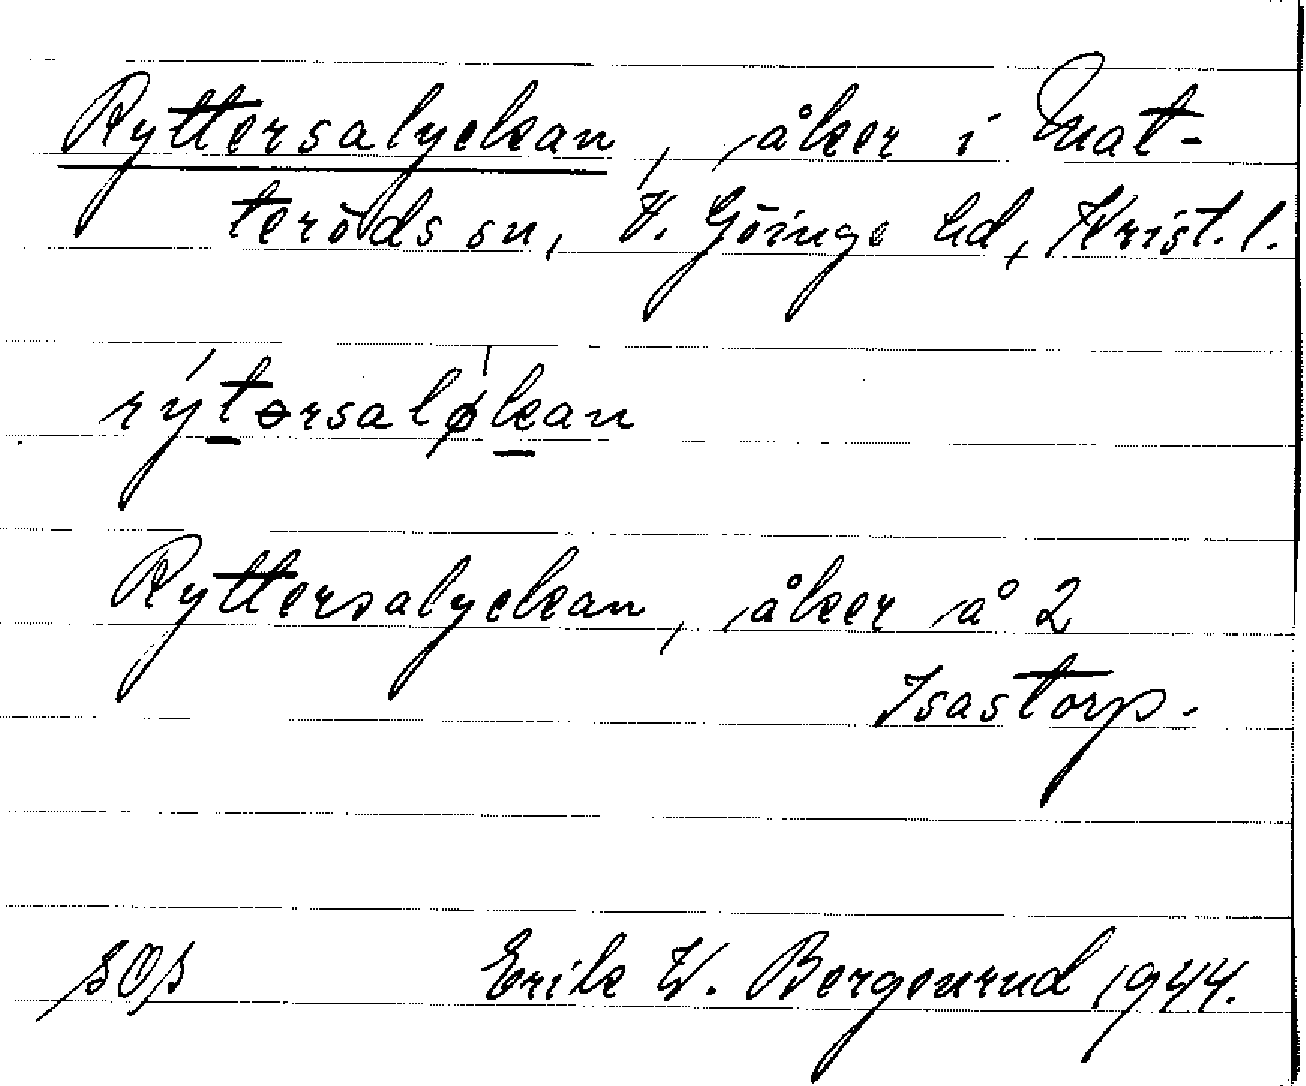 Ryttersalyckan, åker i Mat-
teröds sn, V. Göinge hd, Krist. l.
rýtərsalø̍kan
Ryttersalyckan, åker å 2
Isastorp.
sOs Erik W. Bergenrud 1944.